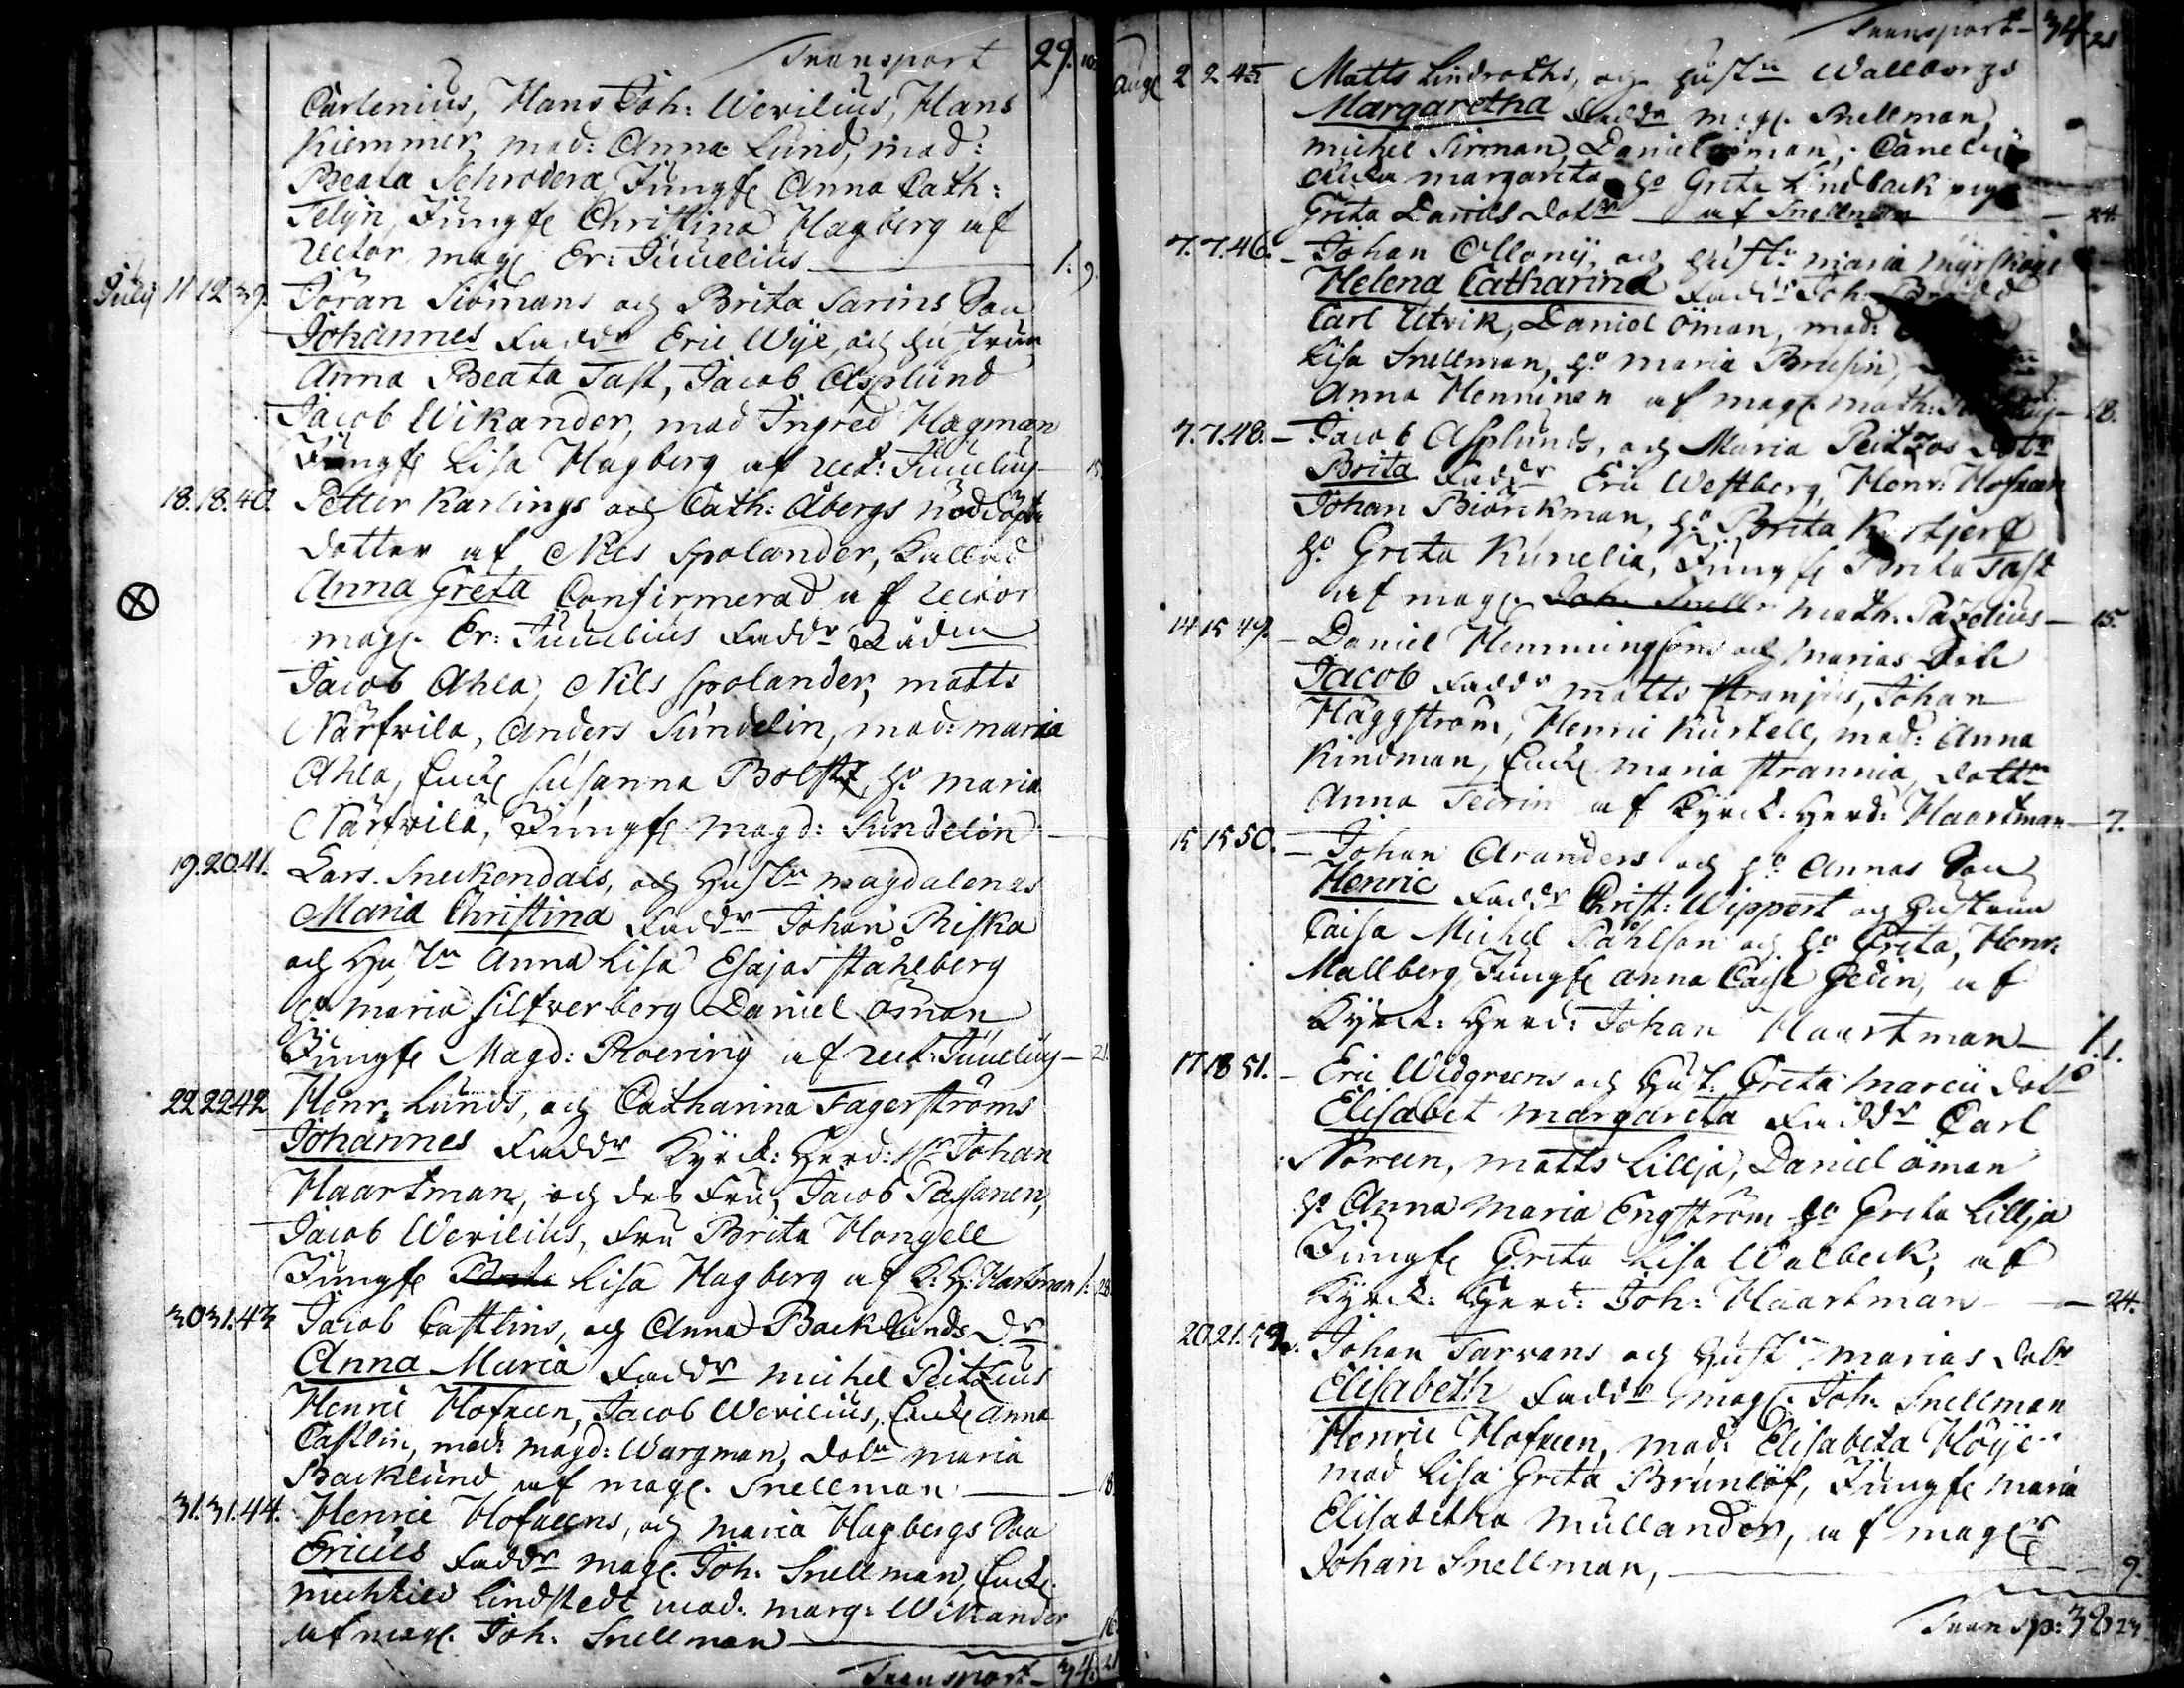 Transport 29. 10.
Carlenius, Hans Joh: Werilius, Hans
Kiemmer, mad: Anna Lund, mad:
Beata Schrodera Jungfr Anna Cath:
Telijn, Jungfr Christina Hagberg af
rector mag Er: Juuelius 1. 9.
July 11 12 39. Jöran Siömans och Brita Sarins Son
Johannes Faddr Eric Wije, och hustrun
Anna Beata Tast, Jacob Asplund
Jacob Wikander, mad Ingred Hagman
Jungfr Lisa Hagberg af rect: Juuelius 15
18. 18. 40. Petter Karlings och Cath: Åbergs nöddöpta
dotter af Nils Spolander, Kallad
Anna Greta Confirmerad af rector
mag. Er: Juuelius Faddr Rådm
Jacob Ahla, Nils Spolander, matts
Närfvilä, Anders Sundelin, mad: maria
Ahla, Enck Susanna Bolst, hu maria
Närfvilä, Jungfr magd: Sundelin
19. 20. 41. Lars Sneckendals, och Hustru magdalenas
Maria Christina Faddr Johan Riska
och Hustru Anna Lisa Esajas ståhlberg
hu maria silfverberg Daniel öman
Jungfr Magd: Roering af rect. Juuelius 21.
22 22 42 Henr. Lunds, och Catharina Fagerströms
Johannes Faddr Kyrck: Herd: Hr Johan
Haartman, och des Fru, Jacob Passanen,
Jacob Werilius, Fru Brita Hongell
Jungfr Lisa Hagberg af K: H: Hartman 1. 28.
30 31. 43 Jacob Castlins, och Anna Backlunds Dr
Anna Maria Faddr michel Peitzius
Henric Hofreen, Jacob Werilius, Enck Anna
Castlin, mad: magd: Wargman, dotr maria
Backlund af mag. Snellman 18.
31. 31. 44. Henric Hofreens, och maria Hagbergs Son
Ericus Faddr mag. Joh. Snellman, Enck.
mechtild Lindstedt mad. marg: Wikander
af mag. Joh. Snellman 16.
Transport 34. 21
Transport 34 21
Aug 2 2 45 Matts Lindroths, och hustru Wallborgs
Margaretha Faddr mag. Snellman,
michel Sirman, Daniel öman,
margareta hu Greta Lindback
Greta Daniels dotr af Snellman 24.
7. 7. 46. Johan Ollonij, och hustr maria
Helena Catharina Faddr Joh.
Carl Utvik, Daniel öman, mad:
Lisa Snellman, hu maria Brusin,
Anna Henninen af mag. math: 18.
7. 7. 48. Jacob Asplunds, och Maria Peitzos dotr
Brita Faddr Eric Westberg, Henr: Hofreen
Johan Biörckman, hu Brita
hu Greta Kunelia, Jungfr Brita Tast
af mag. Joh. Snellm math. Pazelius 15.
14 15 49. Daniel Hemmingsons och marias Dotr
Jacob Faddr matts stranjus, Johan
Häggström, Henric Kurtell, mad: Anna
Kindman, Enck maria strannia, dottr
Anna Teirin af Kyrck. Herd: Haartman 7.
15 15 50. Johan Aranders och hu Annas Son
Henric Faddr Christ: Wippert och hustrun
Caisa Michel Påhlson och hu Greta, Henr:
Mallberg, Jungfr Anna Caisa Hedin, af
Kyrck: Herd: Johan Haartman 1. 1.
17 18 51. Eric Widgreens och Hust: Greta marcii dotr
Elisabet margareta Faddr Carl
Noreen, matts Lillja, Daniel öman
hu Anna maria Engström hu Greta Lillja
Jungfr Greta Lisa Walbeck, af
Kyrck: Herd: Joh: Haartman 24.
20. 21. 52. Johan Tarvans och hustr marias dotr
Elisabeth Faddr mag. Joh. Snellman
Henric Hofreen, mad: Elisabeta Höije
mad Lisa Greta Brunlöf, Jungfr maria
Elisabetha mullander, af magr
Johan Snellman, 9.
Transp: 38 23